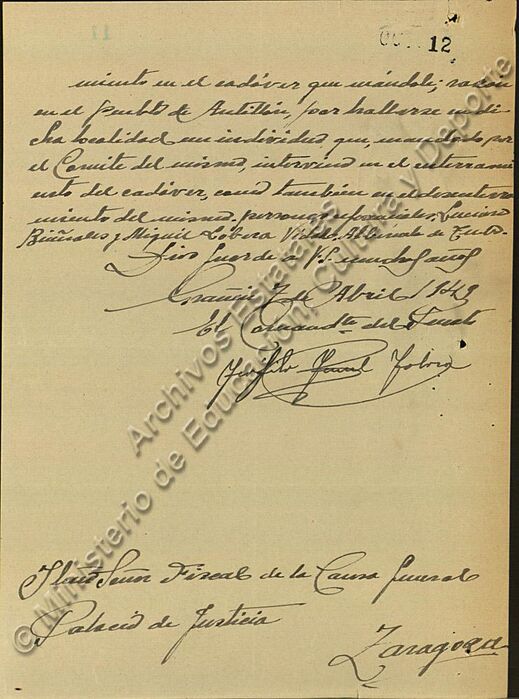 12
miento en el cadáver que
en el pueblo de Antillón, por hallarse en di
cha localidad un individuo que, mandado por
el Comite del mismo, intervino en el enterrami
ento del cadáver, como también en el desenterra
miento del mismo. personas Luciano
y Miguel Lobera Vidal,
Dios guarde a V.S. muchos años
7 de Abril 1942
El Comandte del Puesto
Ilmo Señor Fiscal de la Causa General
Palacio de Justicia
Zaragoza
© Ministerio de Educación, Cultura y Deporte
Archivos Estatales